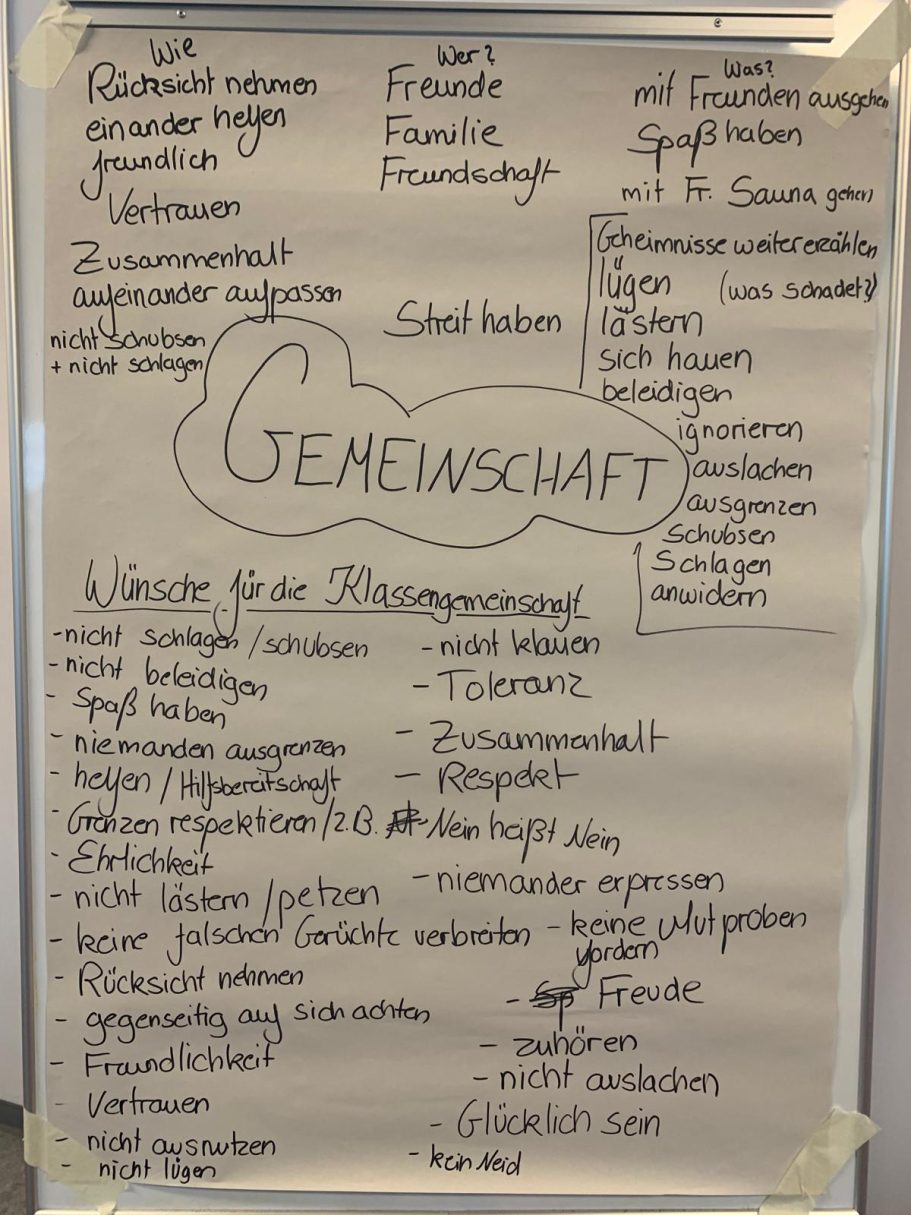 Wie
Rücksicht nehmen
einander helfen
freundlich
Vertrauen
Zusammenhalt
aufeinander aufpassen
nicht schubsen
+ nicht schlagen
Wer?
Freunde
Familie
Freundschaft
Streit haben
Was?
mit Freunden ausgehen
Spaß haben
mit Fr. Sauna gehen
Geheimnisse weitererzählen
lügen (was schadet?)
lästern
sich hauen
beleidigen
ignorieren
auslachen
ausgrenzen
schubsen
Schlagen
anwidern
GEMEINSCHAFT
Wünsche für die Klassengemeinschaft
- nicht schlagen / schubsen
- nicht beleidigen
- Spaß haben
- niemanden ausgrenzen
- helfen / Hilfsbereitschaft
- Grenzen respektieren / z.B. Nein heißt Nein
- Ehrlichkeit
- nicht lästern / petzen
- keine falschen Gerüchte verbreiten
- Rücksicht nehmen
- gegenseitig auf sich achten
- Freundlichkeit
- Vertrauen
- nicht ausnutzen
- nicht lügen
- nicht klauen
- Toleranz
- Zusammenhalt
- Respekt
- niemander erpressen
- keine Mutproben
fordern
- Freude
- zuhören
- nicht auslachen
- Glücklich sein
- kein Neid